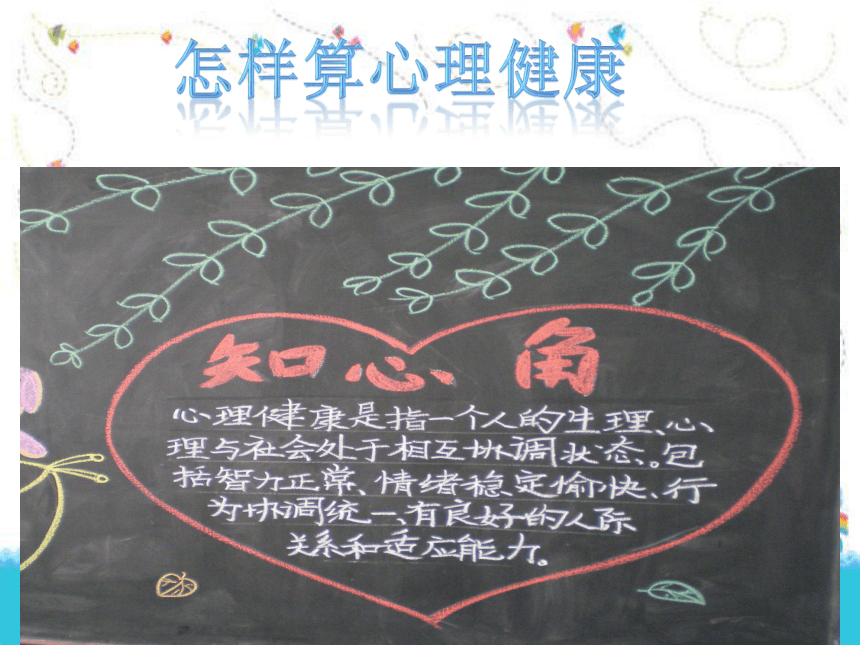 怎样算心理健康
知心角
心理健康是指一个人的生理、心
理与社会处于相互协调状态。包
括智力正常、情绪稳定愉快、行
为协调统一、有良好的人际
关系和适应能力。